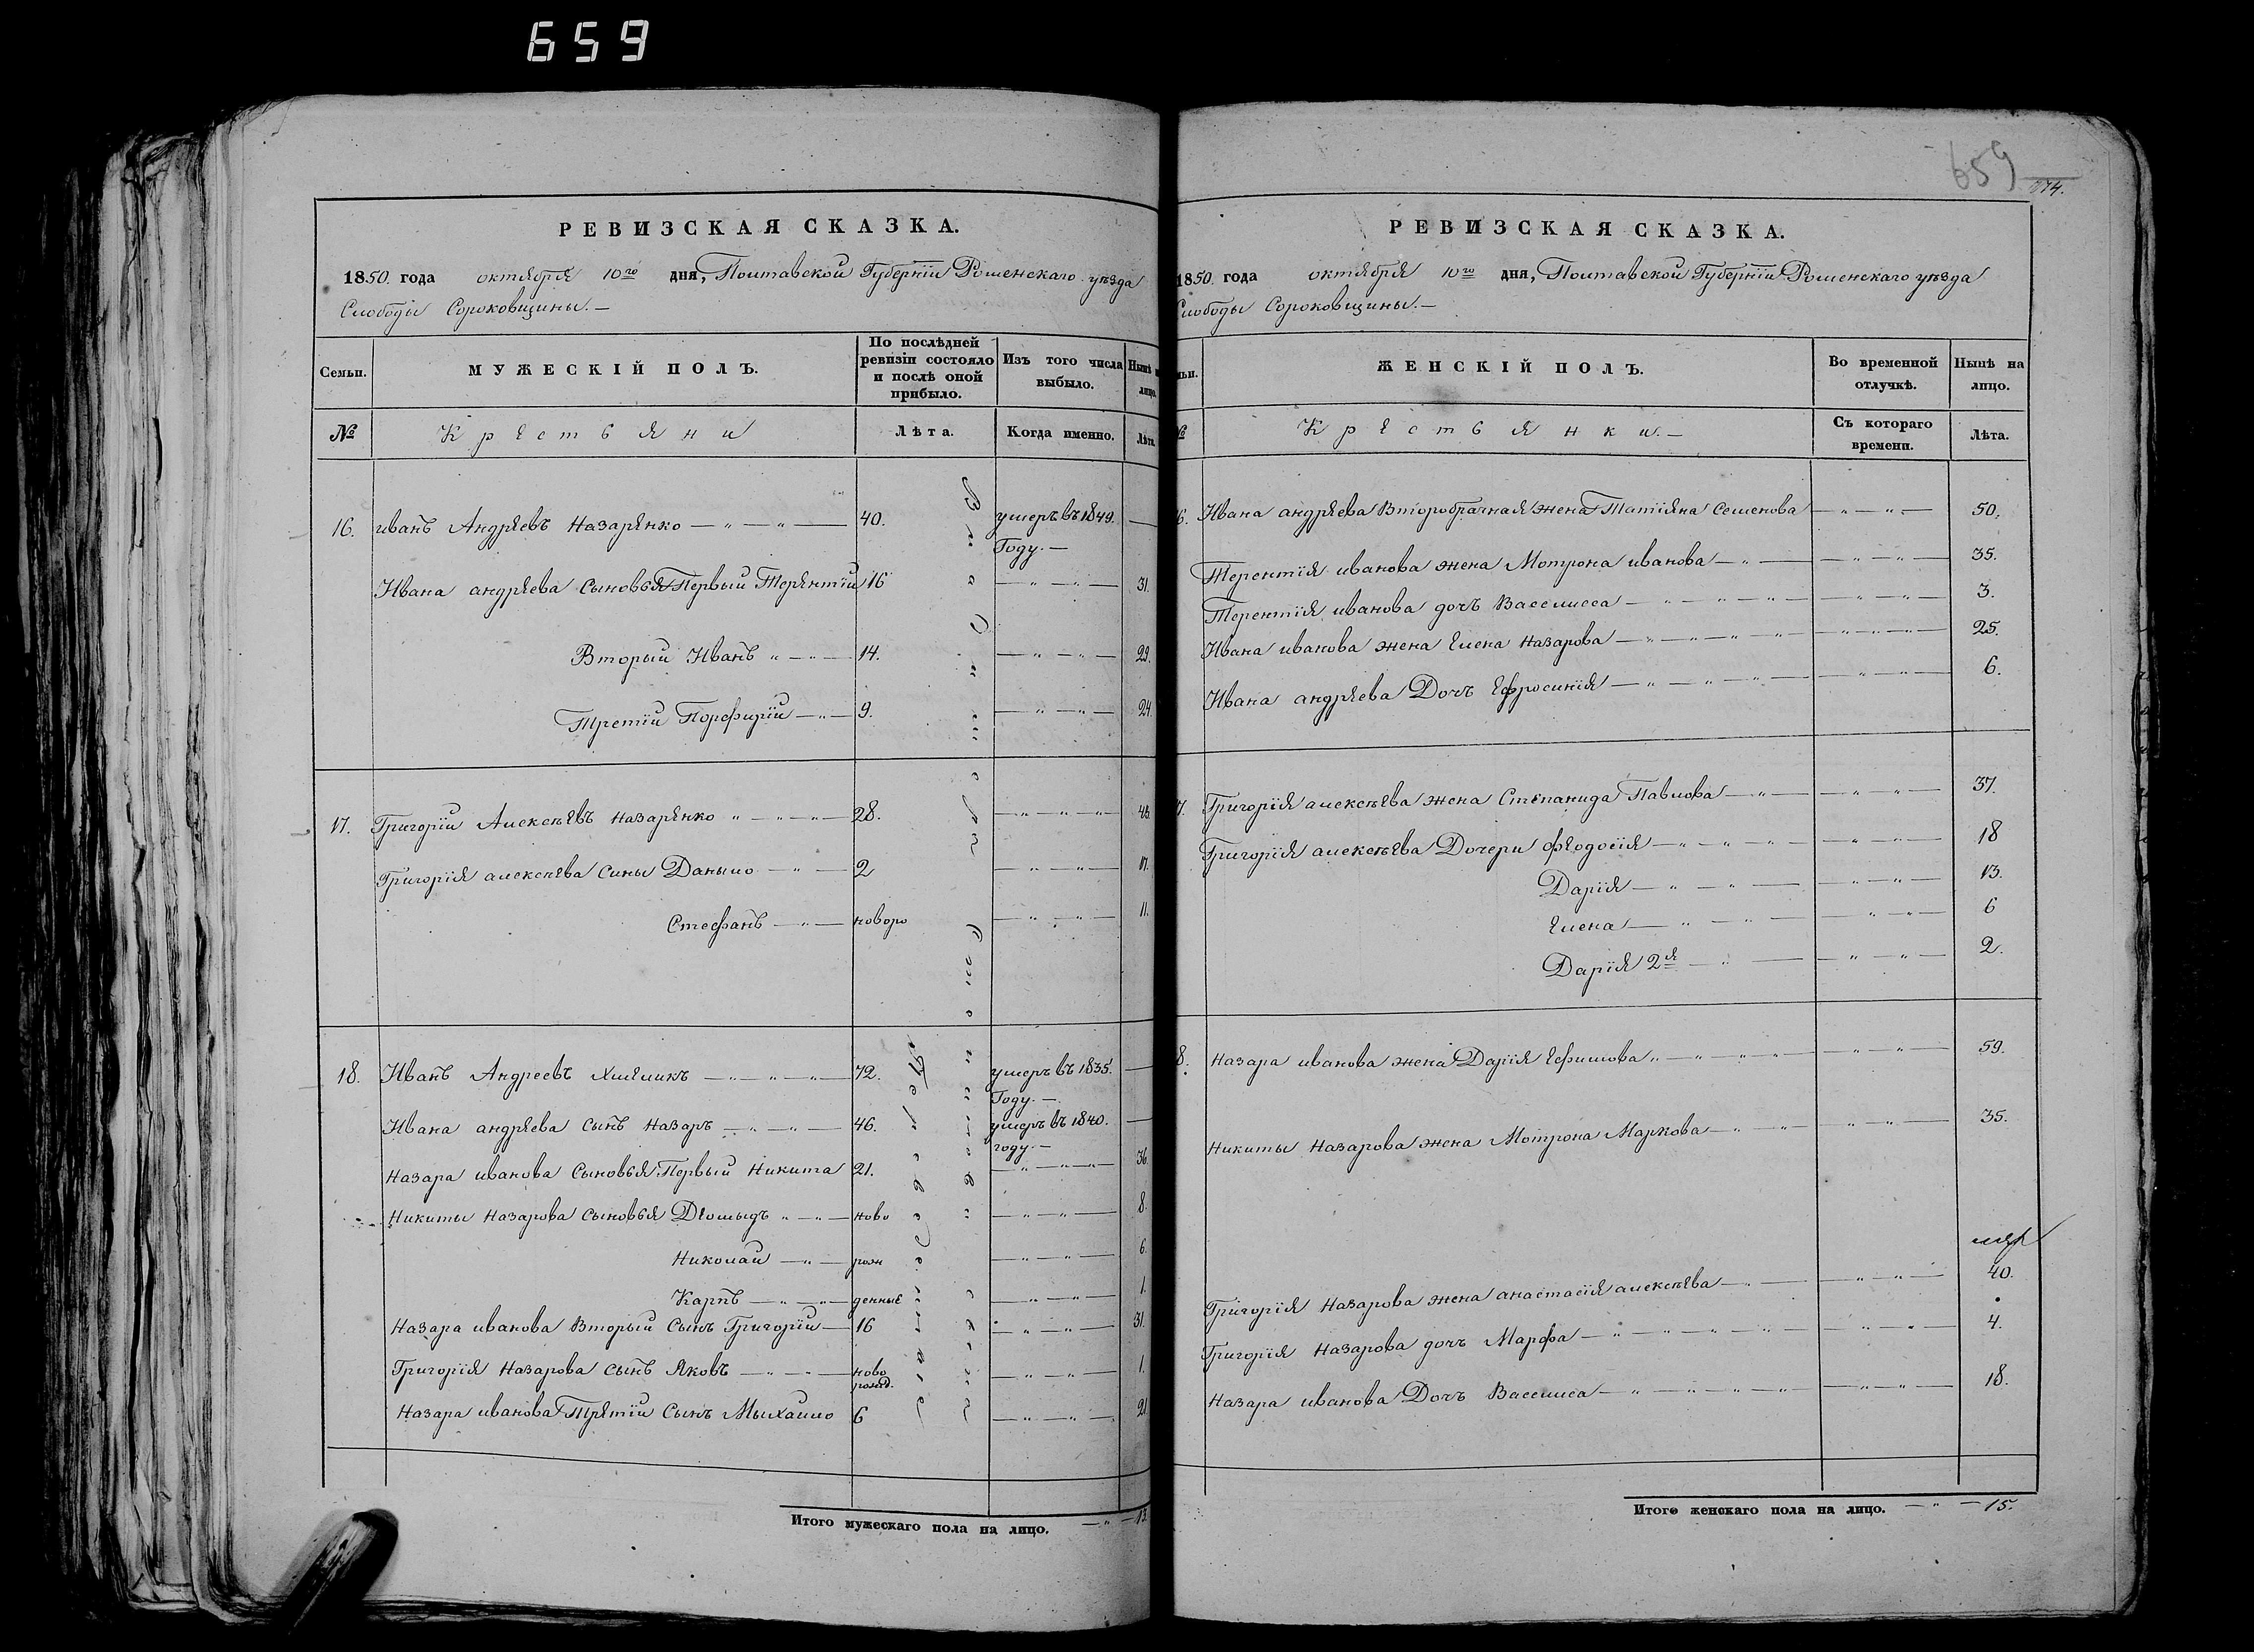 659
РЕВИЗСКАЯ СКАЗКА.
1850. года октября 10го дня, Полтавской Губернїи Роменскаго уѣзда
Слободы Сороковщины.—
Семьи.
МУЖЕСКІЙ ПОЛЪ.
По послѣдней ревизіи состояло и послѣ оной прибыло.
Изъ того числа выбыло.
Нынѣ н лицо.
№
Крестьяни
Лѣта.
Когда именно.
Лѣта.
16. иванъ Андрѣевъ Назаренко — „ — „ — 40. умеръ въ 1849. —
Году. —
Ивана андрѣева сыновья Первый Терентїй 16 — „ — „ — 31.
Вторый Иванъ „ — „ — 14. — „ — „ — 29.
Третїй Порфирїй — „ — 9. — „ — „ — 24.
17. Григорїй Алексѣевъ Назаренко „ — „ — „ — 28. — „ — „ — „ — 43.
Григорїя алексѣева сины Даныло — „ — 2 — „ — „ — 17.
Стефанъ — „ — новоро — „ — „ — 11.
18. Иванъ Андреевъ Хмѣликъ — „ — „ — „ — 72. умеръ въ 1835. —
Году. —
Ивана андрѣева сынъ Назаръ — „ — „ — 46. умеръ въ 1840. —
году. —
Назара иванова Сыновья Первый Никита 21. — „ — „ — „ — 36.
Никиты Назарова сыновья Дӏомыдъ „ — „ — ново — „ — „ — 8.
Николай — „ — рож — „ — „ — 6.
Карпъ — „ — „ — денные — „ — „ — 1.
Назара иванова Вторый Сынъ Григорїй — 16 — „ — „ — 31.
Григорїя Назарова сынъ Яковъ — „ — „ — ново рожд. — „ — „ — 1.
Назара иванова Третїй Сынъ Мыхайло 6 — „ — „ — 21
Итого мужескаго пола на лицо. — „ — 13.
659
РЕВИЗСКАЯ СКАЗКА.
1850. года октября 10го дня, Полтавской Губернїи Роменскаго уѣзда
Слободы Сороковщины.—
мьи.
ЖЕНСКІЙ ПОЛЪ.
Во временной отлучкѣ.
Нынѣ на лицо.
№
Крестьянки. —
Съ котораго времени.
Лѣта.
6. Ивана андрѣева Второбрачная жена Татїяна Семенова — „ — „ — 50.
Терентїя иванова жена Мотрона иванова — „ — — „ — „ — 35.
Терентїя иванова дочъ Васелисса — „ — „ — „ — „ — „ — „ — 3.
Ивана иванова жена Елена Назарова — „ — „ — „ — „ — „ — „ — 25.
Ивана андрѣева Дочъ Ефросинїя — „ — „ — „ — „ — „ — 6.
7. Григорїя алексѣева жена Степанида Павлова — „ — — „ — „ — 37.
Григорїя алексѣева Дочери феодосїя — „ — „ — „ — „ — „ — 18
Дарїя — „ — „ — — „ — „ — 13.
Елена — „ — „ — — „ — „ — 6
Дарїя 2я — „ — — „ — „ — 2.
8. Назара иванова жена Дарїя Ефимова „ — „ — „ — „ — „ — „ — 59.
Никиты Назарова жена Мотрона Маркова — „ — „ — — „ — „ — 35.
Григорїя Назарова жена анастасїя алексѣева — „ — — „ — „ — 40.
Григорїя Назарова дочъ Марфа — „ — „ — „ — „ — „ — „ — 4.
Назара иванова Дочъ Василиса — „ — „ — „ — „ — „ — „ — 18.
Итого женскаго пола на лицо. — „ — 15.